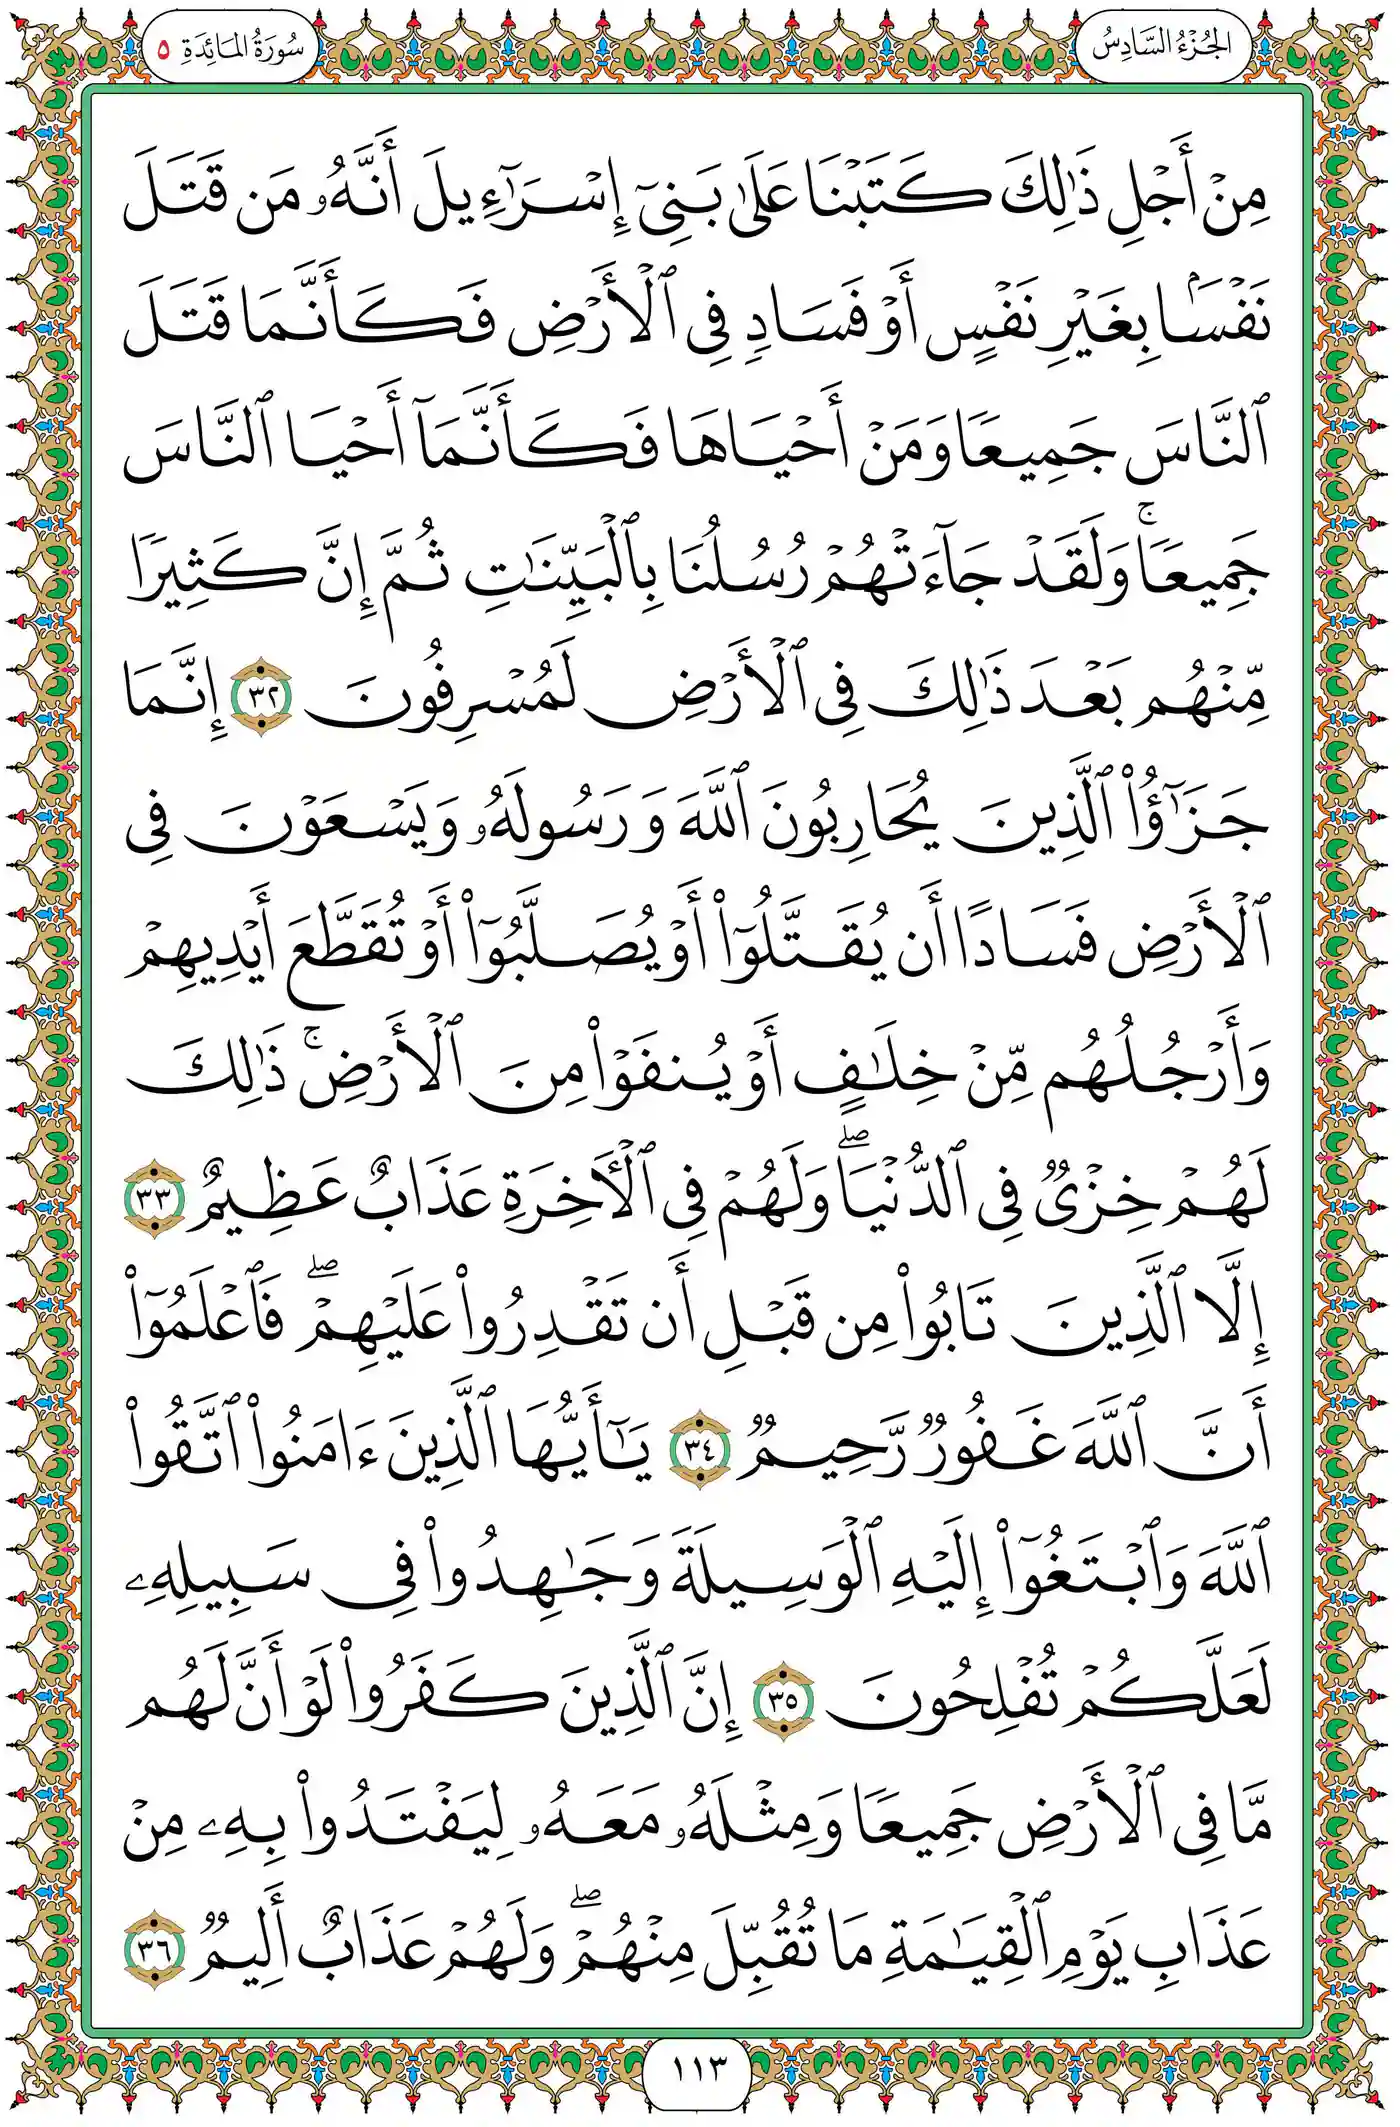 الجُزْءُ السَّادِسُ
سُورَةُ المَائِدَةِ ٥
مِنْ أَجْلِ ذَٰلِكَ كَتَبْنَا عَلَىٰ بَنِىٓ إِسْرَٰٓءِيلَ أَنَّهُۥ مَن قَتَلَ
نَفْسَۢا بِغَيْرِ نَفْسٍ أَوْ فَسَادٍ فِى ٱلْأَرْضِ فَكَأَنَّمَا قَتَلَ
ٱلنَّاسَ جَمِيعًا وَمَنْ أَحْيَاهَا فَكَأَنَّمَآ أَحْيَا ٱلنَّاسَ
جَمِيعًا ۚ وَلَقَدْ جَآءَتْهُمْ رُسُلُنَا بِٱلْبَيِّنَٰتِ ثُمَّ إِنَّ كَثِيرًا
مِّنْهُم بَعْدَ ذَٰلِكَ فِى ٱلْأَرْضِ لَمُسْرِفُونَ ٣٢ إِنَّمَا
جَزَٰٓؤُا۟ ٱلَّذِينَ يُحَارِبُونَ ٱللَّهَ وَرَسُولَهُۥ وَيَسْعَوْنَ فِى
ٱلْأَرْضِ فَسَادًا أَن يُقَتَّلُوٓا۟ أَوْ يُصَلَّبُوٓا۟ أَوْ تُقَطَّعَ أَيْدِيهِمْ
وَأَرْجُلُهُم مِّنْ خِلَٰفٍ أَوْ يُنفَوْا۟ مِنَ ٱلْأَرْضِ ۚ ذَٰلِكَ
لَهُمْ خِزْىٌ فِى ٱلدُّنْيَا ۖ وَلَهُمْ فِى ٱلْـَٔاخِرَةِ عَذَابٌ عَظِيمٌ ٣٣
إِلَّا ٱلَّذِينَ تَابُوا۟ مِن قَبْلِ أَن تَقْدِرُوا۟ عَلَيْهِمْ ۖ فَٱعْلَمُوٓا۟
أَنَّ ٱللَّهَ غَفُورٌ رَّحِيمٌ ٣٤ يَٰٓأَيُّهَا ٱلَّذِينَ ءَامَنُوا۟ ٱتَّقُوا۟
ٱللَّهَ وَٱبْتَغُوٓا۟ إِلَيْهِ ٱلْوَسِيلَةَ وَجَٰهِدُوا۟ فِى سَبِيلِهِۦ
لَعَلَّكُمْ تُفْلِحُونَ ٣٥ إِنَّ ٱلَّذِينَ كَفَرُوا۟ لَوْ أَنَّ لَهُم
مَّا فِى ٱلْأَرْضِ جَمِيعًا وَمِثْلَهُۥ مَعَهُۥ لِيَفْتَدُوا۟ بِهِۦ مِنْ
عَذَابِ يَوْمِ ٱلْقِيَٰمَةِ مَا تُقُبِّلَ مِنْهُمْ ۖ وَلَهُمْ عَذَابٌ أَلِيمٌ ٣٦
١١٣